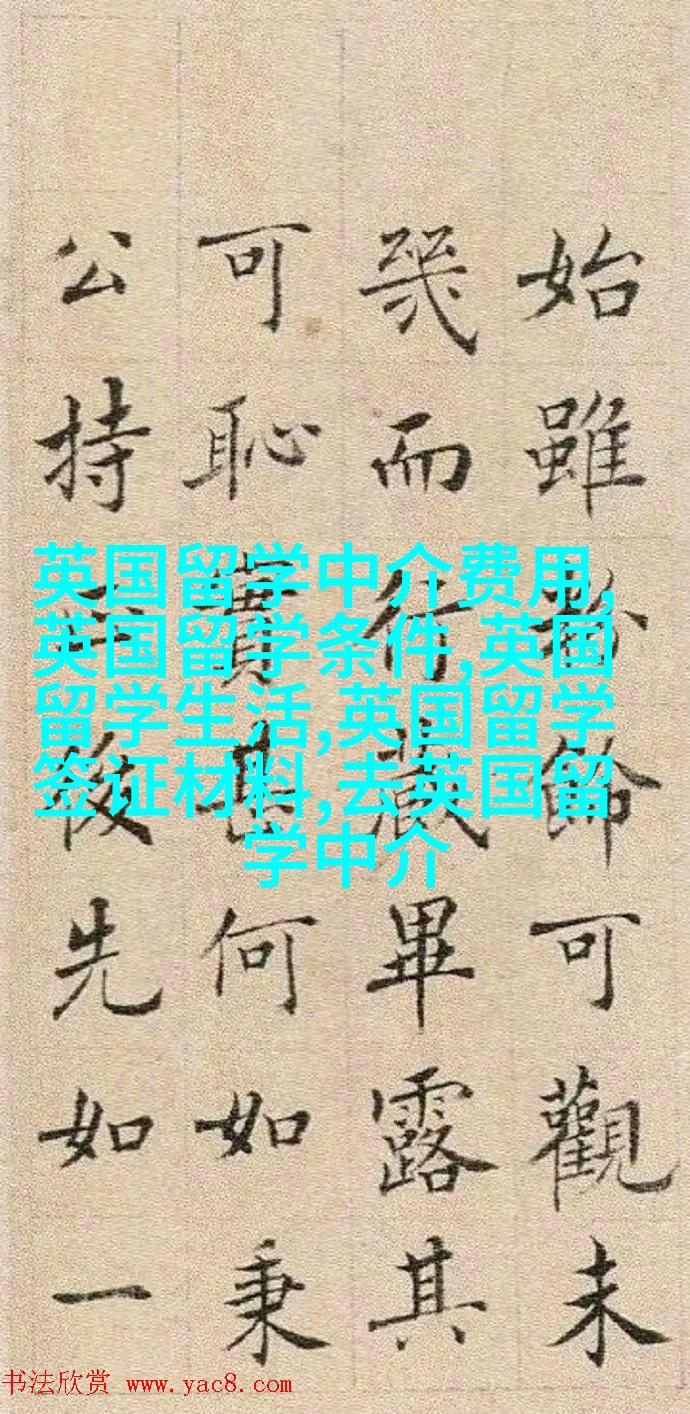 始雖粉飾可觀未
幾而行藏畢露其
可恥實甚何如秉
公持正後先如一
英国留学中介费用,
英国留学条件,英国
留学生活,英国留学
签证材料,去英国留
学中介
书法欣赏 www.yac8.com